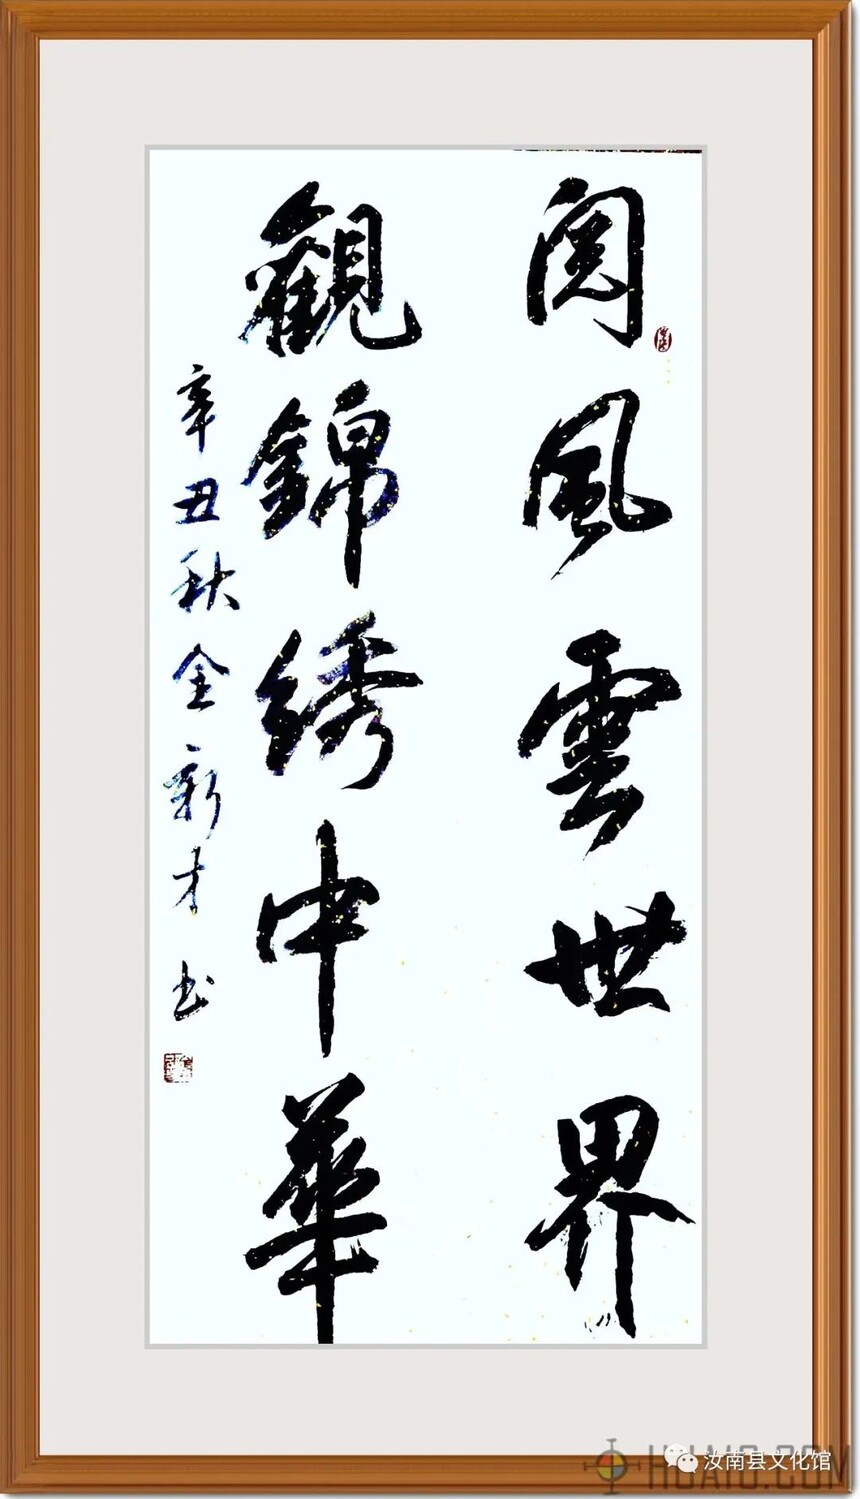 阅風雲世界
觀錦绣中華
辛丑秋金新才书
汝南县文化馆
HUAIC.COM